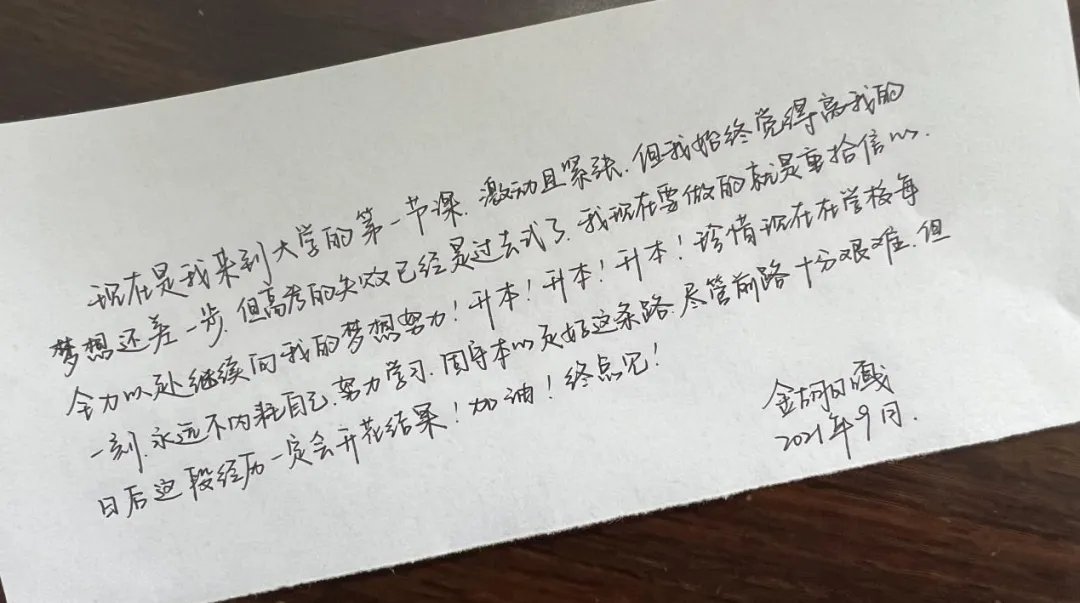 现在是我来到大学的第一节课.激动且紧张.但我始终觉得离我的
梦想还差一步.但高考的失败已经是过去式了.我现在要做的就是重拾信心.
全力以赴继续向我的梦想努力!升本!升本!升本!珍惜现在在学校每
一刻.永远不内耗自己.努力学习.固守本心走好这条路.尽管前路十分艰难.但
日后这段经历一定会开花结果!加油!终点见!
金
2021年9月.